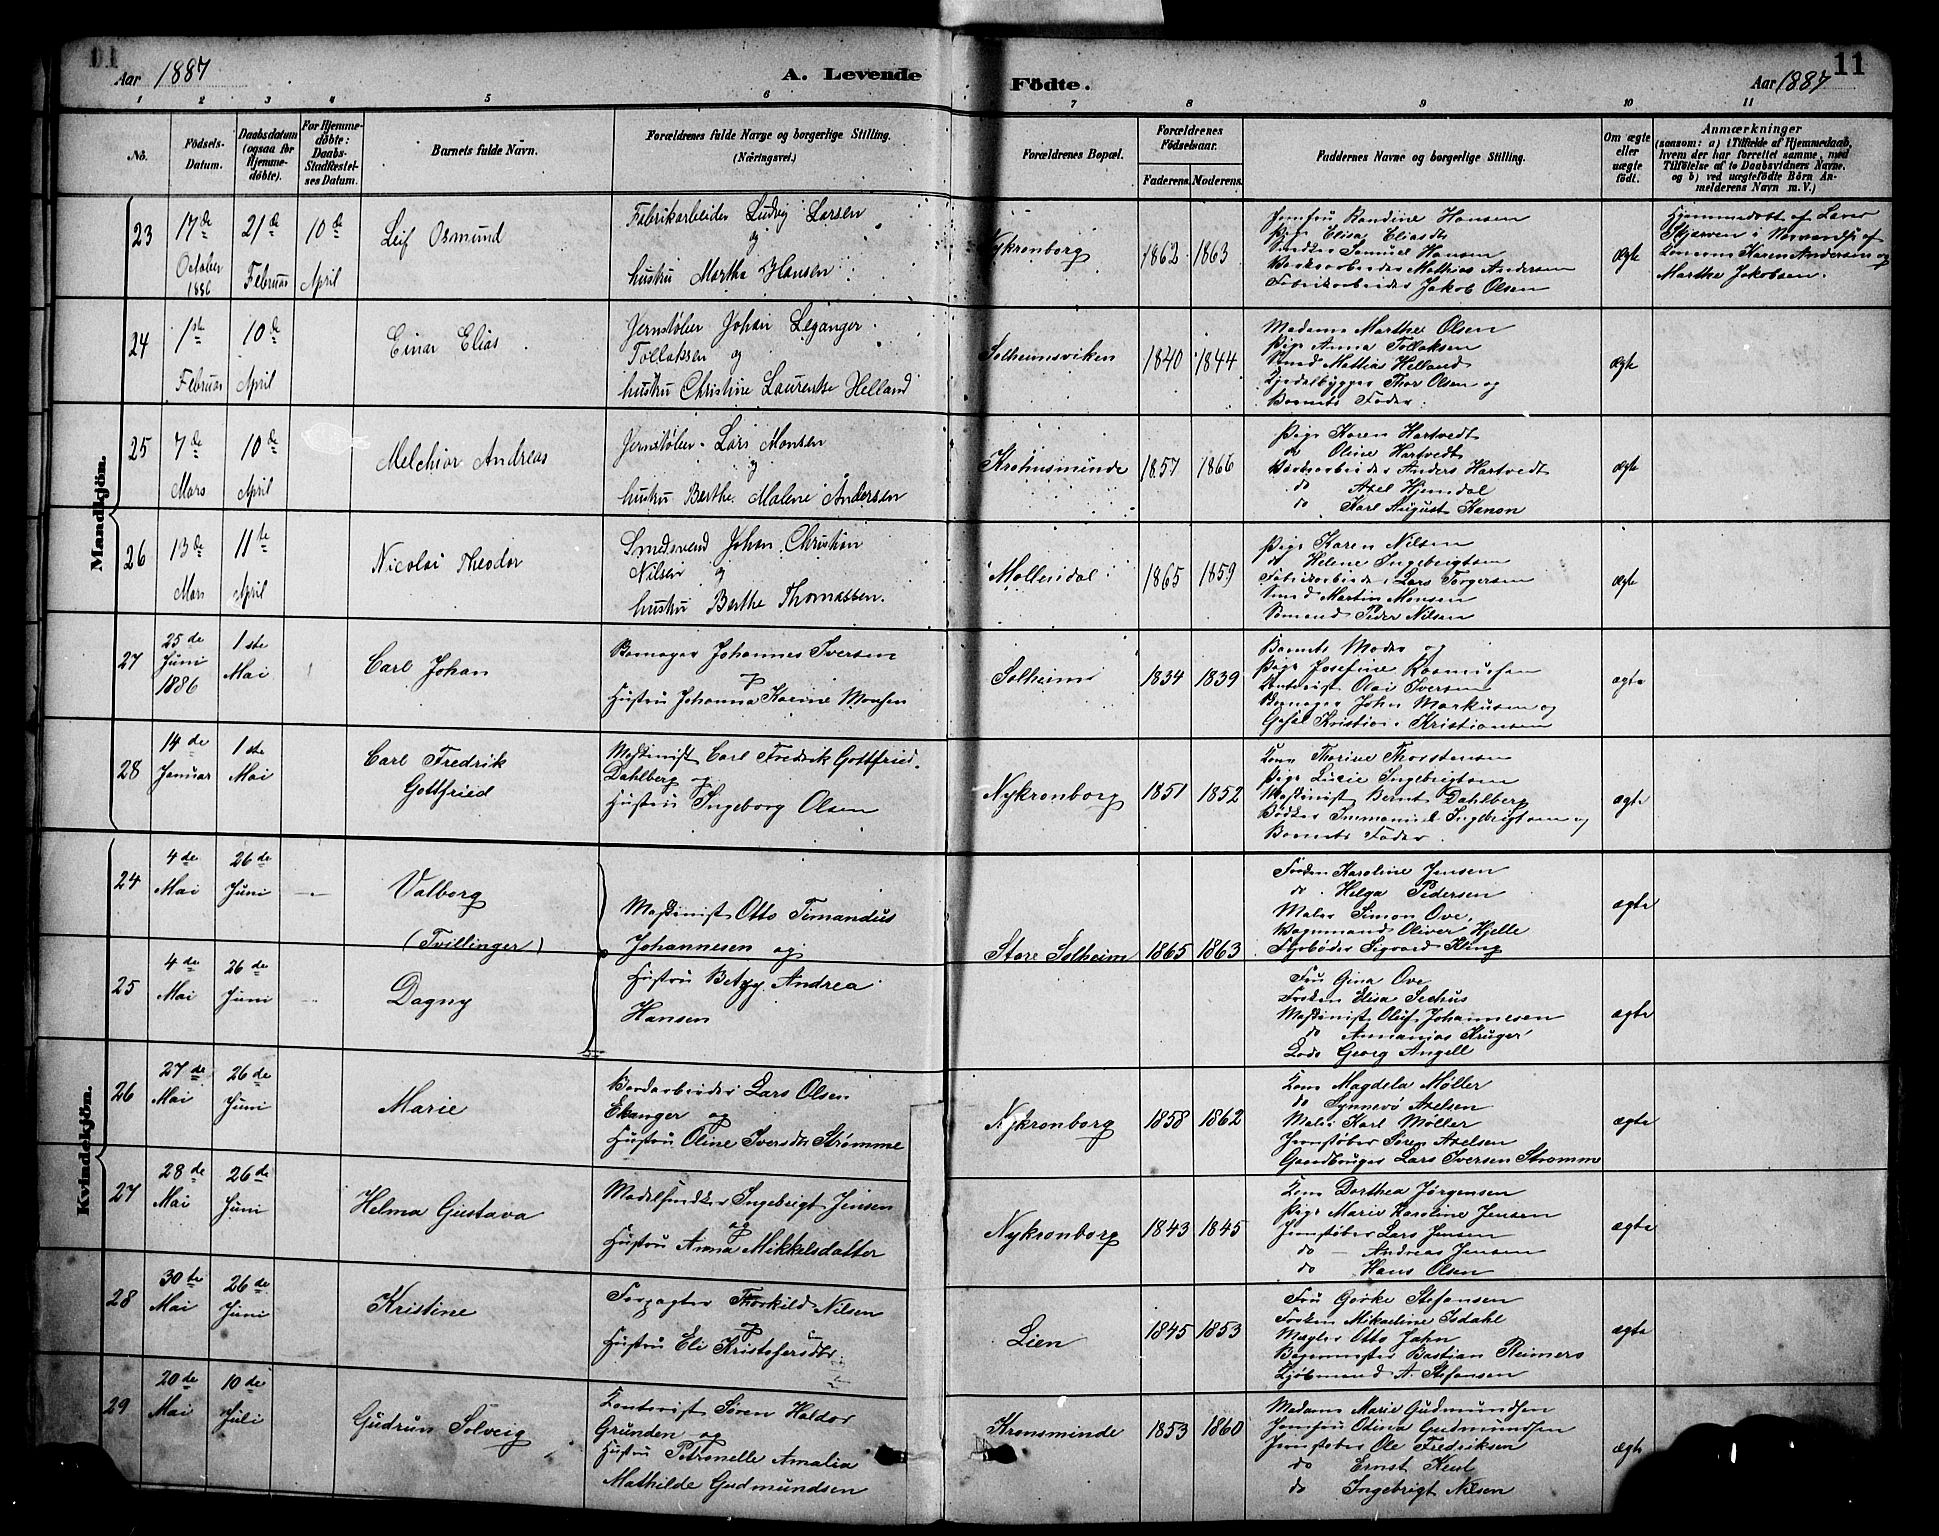 11
Aar 1887
A. Levende Födte.
Aar 1887
11
1 2 3 4 5 6 7 8 9 10 11
No.
Födsels-Datum.
Daabsdatum (ogsaa for Hjemme-döbte).
For Hjemme-döbte: Daabs-Stadfæstel-ses Datum.
Barnets fulde Navn.
Forældrenes fulde Navne og borgerlige Stilling. (Næringsvei.)
Forældrenes Bopæl.
Forældrenes Födselsaar.
Faderens. Moderens.
Faddernes Navne og borgerlige Stilling.
Om ægte eller uægte födt.
Anmærkninger
(saasom: a) i Tilfælde af Hjemmedaab, hvem der har forrettet samme, med Tilföielse af to Daabsvidners Navne, og b) ved uægtefödte Börn An-melderens Navn m. V.)
Mandkjön.
23
17de October 1886
21de Februar
10de April
Leif Osmund
Fabrikarbeider Ludvig Larsen
og
hustru Martha Hansen
Nykronborg
1862 1863
Jomfru Randine Hansen
Pige Elisa Eliasdt
Smed Samuel Hansen
Mathias Andersen
Fabrikarbeider Jakob Olsen
ægte
Hjemmedøbt af
Karen Andersen og
Martha Jakobsen.
24
1ste Februar
10de April
Einar Elias
Jernstøber Johan Leganger
Tollaksen og
hustru Christine Laurentse Helland
Solheimsviken
1840 1844
Madame Marthe Olsen
Pige Anna Tollaksen
Smed Mathias Helland
Kjedelbygger Thor Olsen og
Barnets Fader.
ægte
25
7de Mars
10de April
Melchior Andreas
Jernstøber Lars Monsen
og
hustru Berthe Malene Andersen
Krohnsminde
1857 1866
Pige Karen Hartvedt
do Oline Hartvedt
Anders Hartvedt
do Axel Hjemdal
do Karl August Kanon
ægte
26
13de Mars
11te April
Nicolai Theodor
Smedsvend Johan Christian
Nilsen og
hustru Berthe Thomassen.
Møllendal
1865 1859
Pige Karen Nilsen
do Helene Ingebrigtsen
Fabrikarbeider Lars Torgersen
Smed Martin Monsen
Sømand Peder Nilsen
ægte
27
25de Juni 1886
1ste Mai
Carl Johan
Johannes Iversen
og
Hustru Johanna Karine Monsen
Solheim
1834 1839
Barnets Moder og
Pige Josefine Rasmussen
Kontorist Olai Iversen
John Markusen og
Kristian Kristiansen
ægte
28
14de Januar
1ste Mai
Carl Fredrik
Gottfried
Maskinist Carl Fredrik Gottfried
Dahlberg og
Hustru Ingeborg Olsen
Nykronborg
1851 1852
Kone Thorine Thorstensen
Pige Lucie Ingebrigtsen
Maskinist Bernt Dahlberg
Bødker Immanuel Ingebrigtsen og
Barnets Fader
ægte
Kvindekjön.
24
4de Mai
26de Juni
Valborg
(Tvillinger)
Maskinist Otto Timandus
Johannesen og
Hustru Betzy Andrea
Hansen
Store Solheim
1865 1863
Frøken Karoline Jensen
do Helga Pedersen
Maler Simon Ove,
Oliver Hjelle
Fyrbøder Sigvard Kling
ægte
25
4de Mai
26de Juni
Dagny
Fru Gina Ove
Frøken Elisa Sechus
Maskinist Oluf Johannesen
do Annanias Krüger
Lods Georg Angell
ægte
26
27de Mai
26de Juni
Marie
Lars Olsen
Ekanger og
Hustru Oline Iversdtr Strømme
Nykronborg
1858 1862
Kone Magdela Møller
do Synnevø Axelsen
Maler Karl Møller
Jernstøber Søren Axelsen
Gaardbruger Lars Iversen Strømme
ægte
27
28de Mai
26de Juni
Helma Gustava
Modelsnedker Ingebrigt Jensen
og
Hustru Anna Mikkelsdatter
Nykronborg
1843 1845
Kone Dorthea Jørgensen
Pige Marie Karoline Jensen
Jernstøber Lars Jensen
do – Andreas Jensen
do Hans Olsen
ægte
28
30te Mai
26de Juni
Kristine
Forpagter Thorkild Nilsen
og
Hustru Eli Kristofersdtr
Lien
1845 1853
Fru Gørke Stefansen
Frøken Mikaeline Isdahl
Mægler Otto Jahn
Bagermester Bastian Reimers
Kjøbmand A. Stefansen
ægte
29
20de Mai
10de Juli
Gudrun Solveig
Kontorist Søren Haldor
Grunden og
Hustru Petronelle Amalia
Mathilde Gudmundsen
Kronsminde
1853 1860
Madame Marie Gudmundsen
Jomfru Odina Gudmundsen
Jernstøber Ole Fredriksen
do Ernst Keul
do Ingebrigt Nilsen
ægte